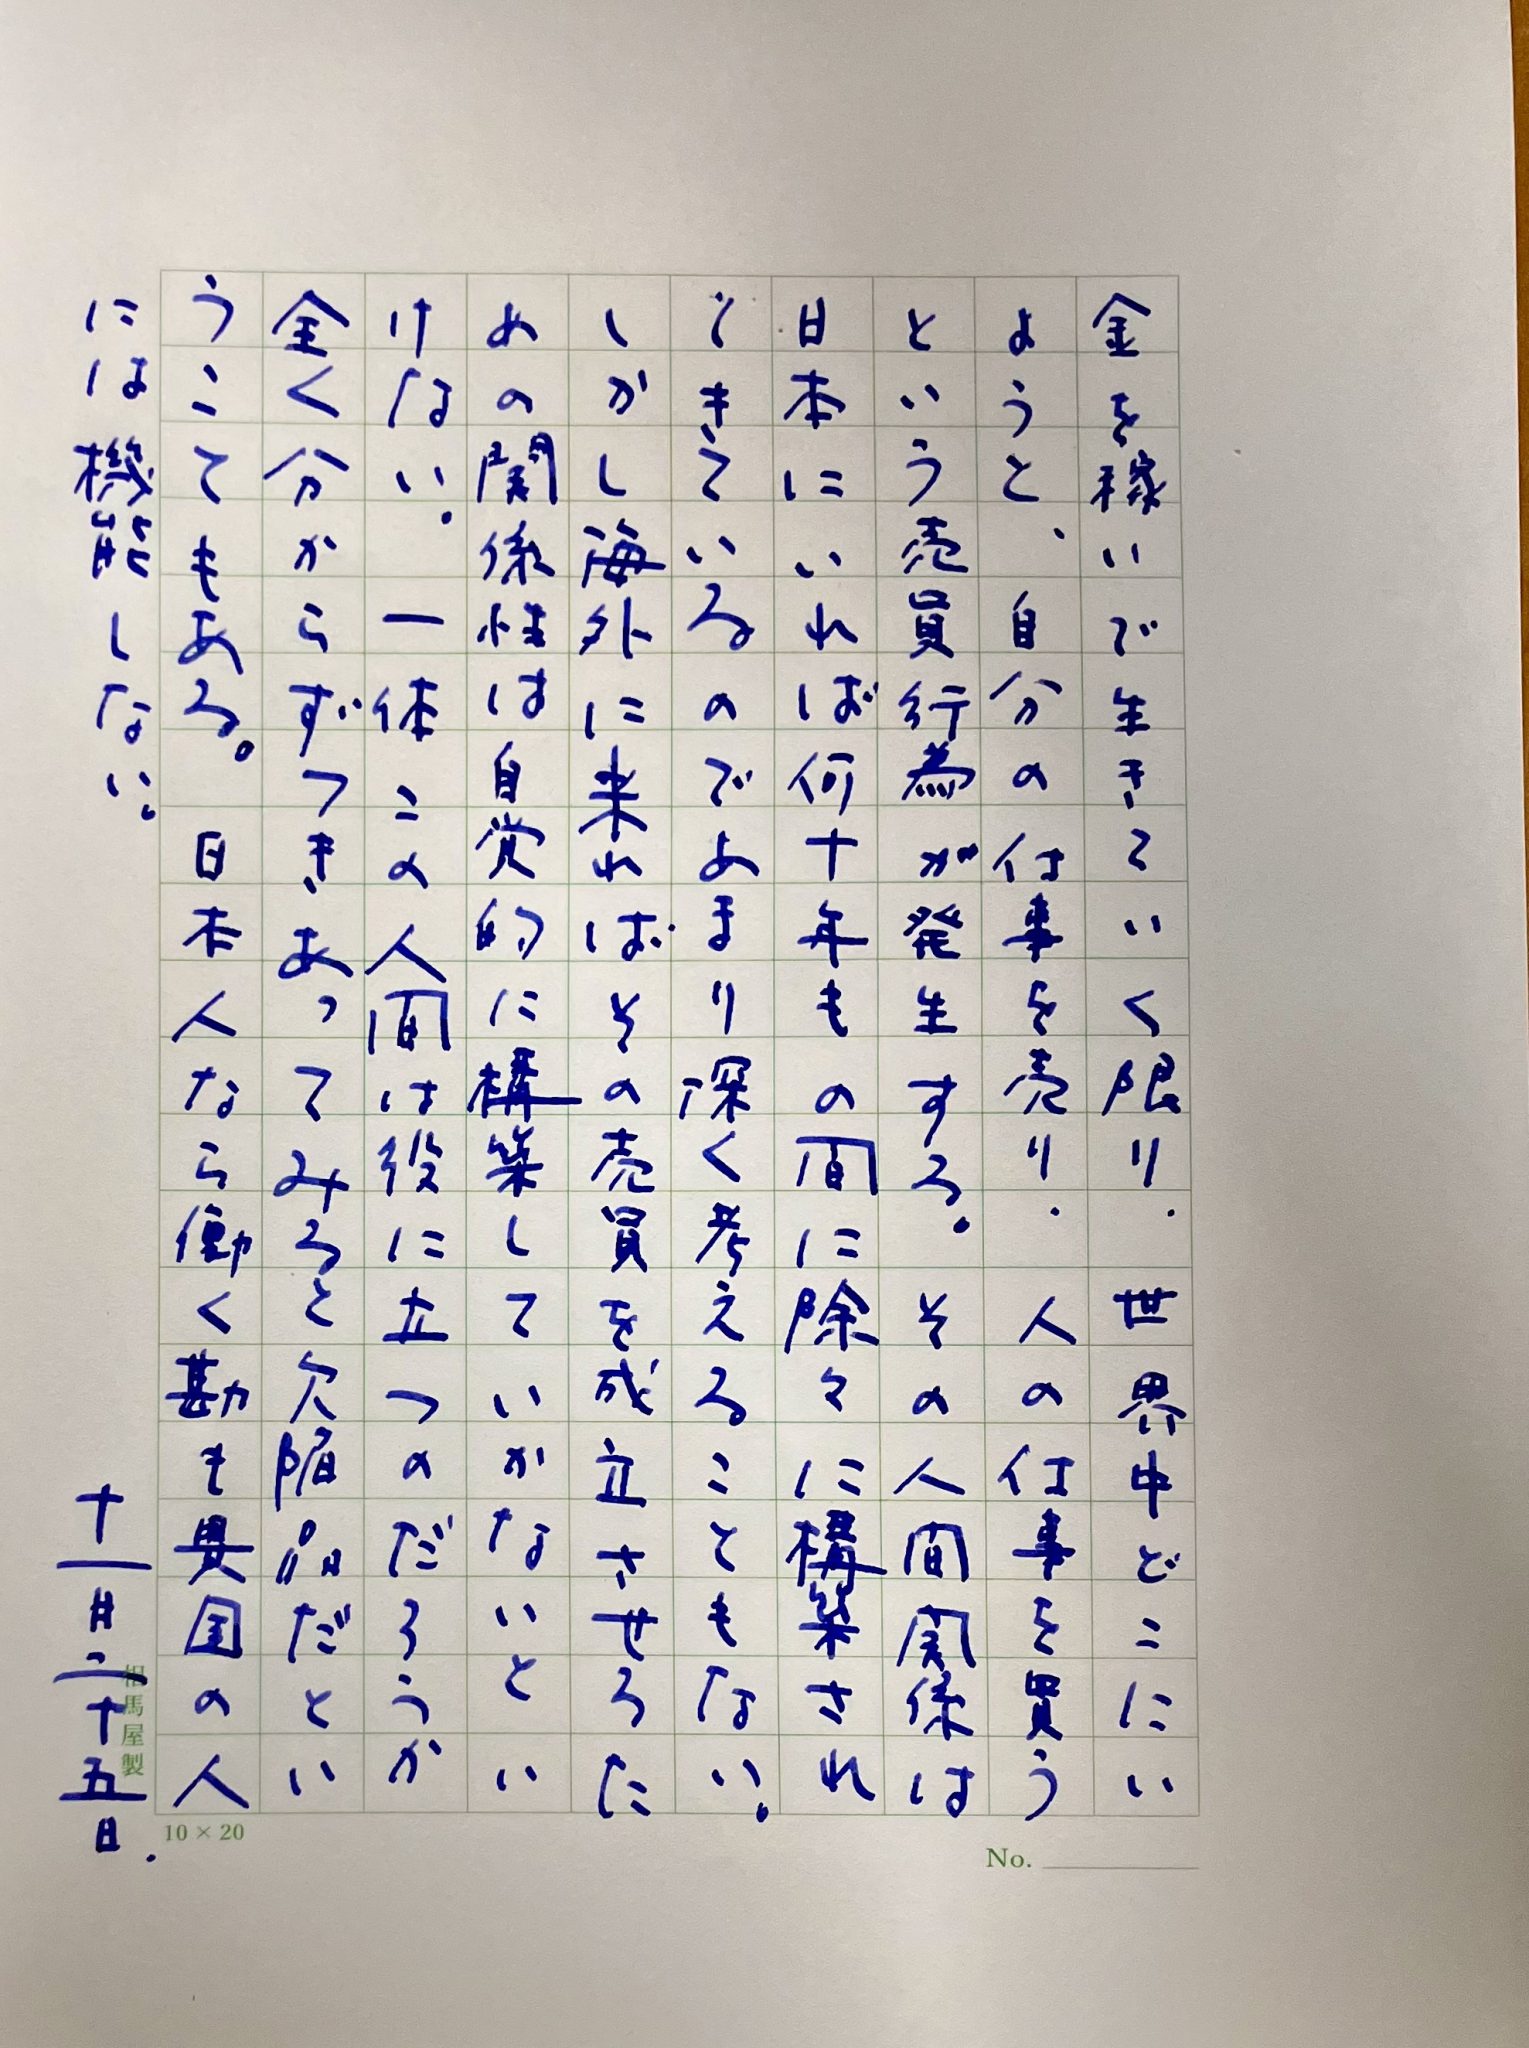 金を稼いで生きていく限り、世界中どこにい
ようと、自分の仕事を売り、人の仕事を買う
という売買行為が発生する。その人間関係は
日本にいれば何十年もの間に除々に構築され
できているのであまり深く考えることもない。
しかし海外に来ればその売買を成立させるた
めの関係性は自覚的に構築していかないとい
けない。一体この人間は役に立つのだろうか
全く分からずつきあってみると欠陥品だとい
うこてもある。日本人なら働く勘も異国の人
には機能しない。
十一月二十五日.
相馬屋製
10×20
No.